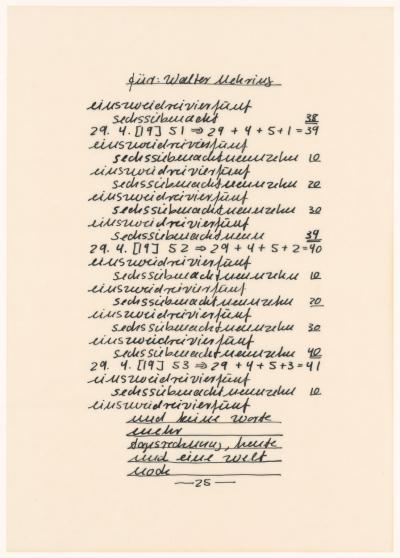 für: Walter Mehring
einszweidreivierfünf
sechssiebenacht 38
29. 4. [19] 51 ⇒ 29 + 4 + 5 + 1 = 39
einszweidreivierfünf
sechssiebenachtneunzehn 10
einszweidreivierfünf
sechssiebenachtneunzehn 20
einszweidreivierfünf
sechssiebenachtneunzehn 30
einszweidreivierfünf
sechssiebenachtneun 39
29. 4. [19] 52 ⇒ 29 + 4 + 5 + 2 = 40
einszweidreivierfünf
sechssiebenachtneunzehn 10
einszweidreivierfünf
sechssiebenachtneunzehn 20
einszweidreivierfünf
sechssiebenachtneunzehn 30
einszweidreivierfünf
sechssiebenachtneunzehn 40
29. 4. [19] 53 ⇒ 29 + 4 + 5 + 3 = 41
einszweidreivierfünf
sechssiebenachtneunzehn 10
einszweidreivierfünf
und keine worte
mehr
tagesrechnung, heute
und eine welt
noch
—25—